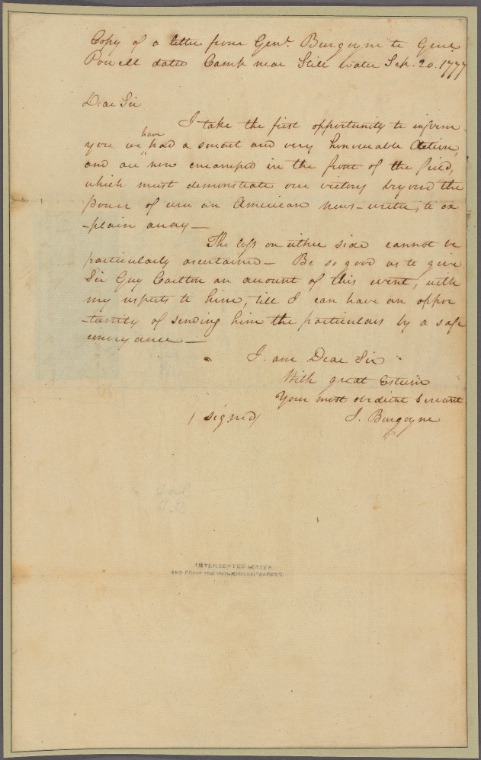 Copy of a letter from Genl. Burgoyne to Genl.
Powell dated Camp near Still Water Sep. 20. 1777
Dear Sir
I take the first opportunity to inform
you we have had a smart and very honourable Action,
and are now encamped in the front of the field,
which must demonstrate our victory beyond the
power of even an American news-writer to ex
-plain away—
The loss on either side cannot be
particularly ascertained— Be so good as to give
Sir Guy Carlton an account of this event, with
my respects to him, till I can have an oppor
-tunity of sending him the particulars by a safe
conveyance—
I am Dear Sir
With great Esteem
Your most obedient Servant
(signed) J. Burgoyne